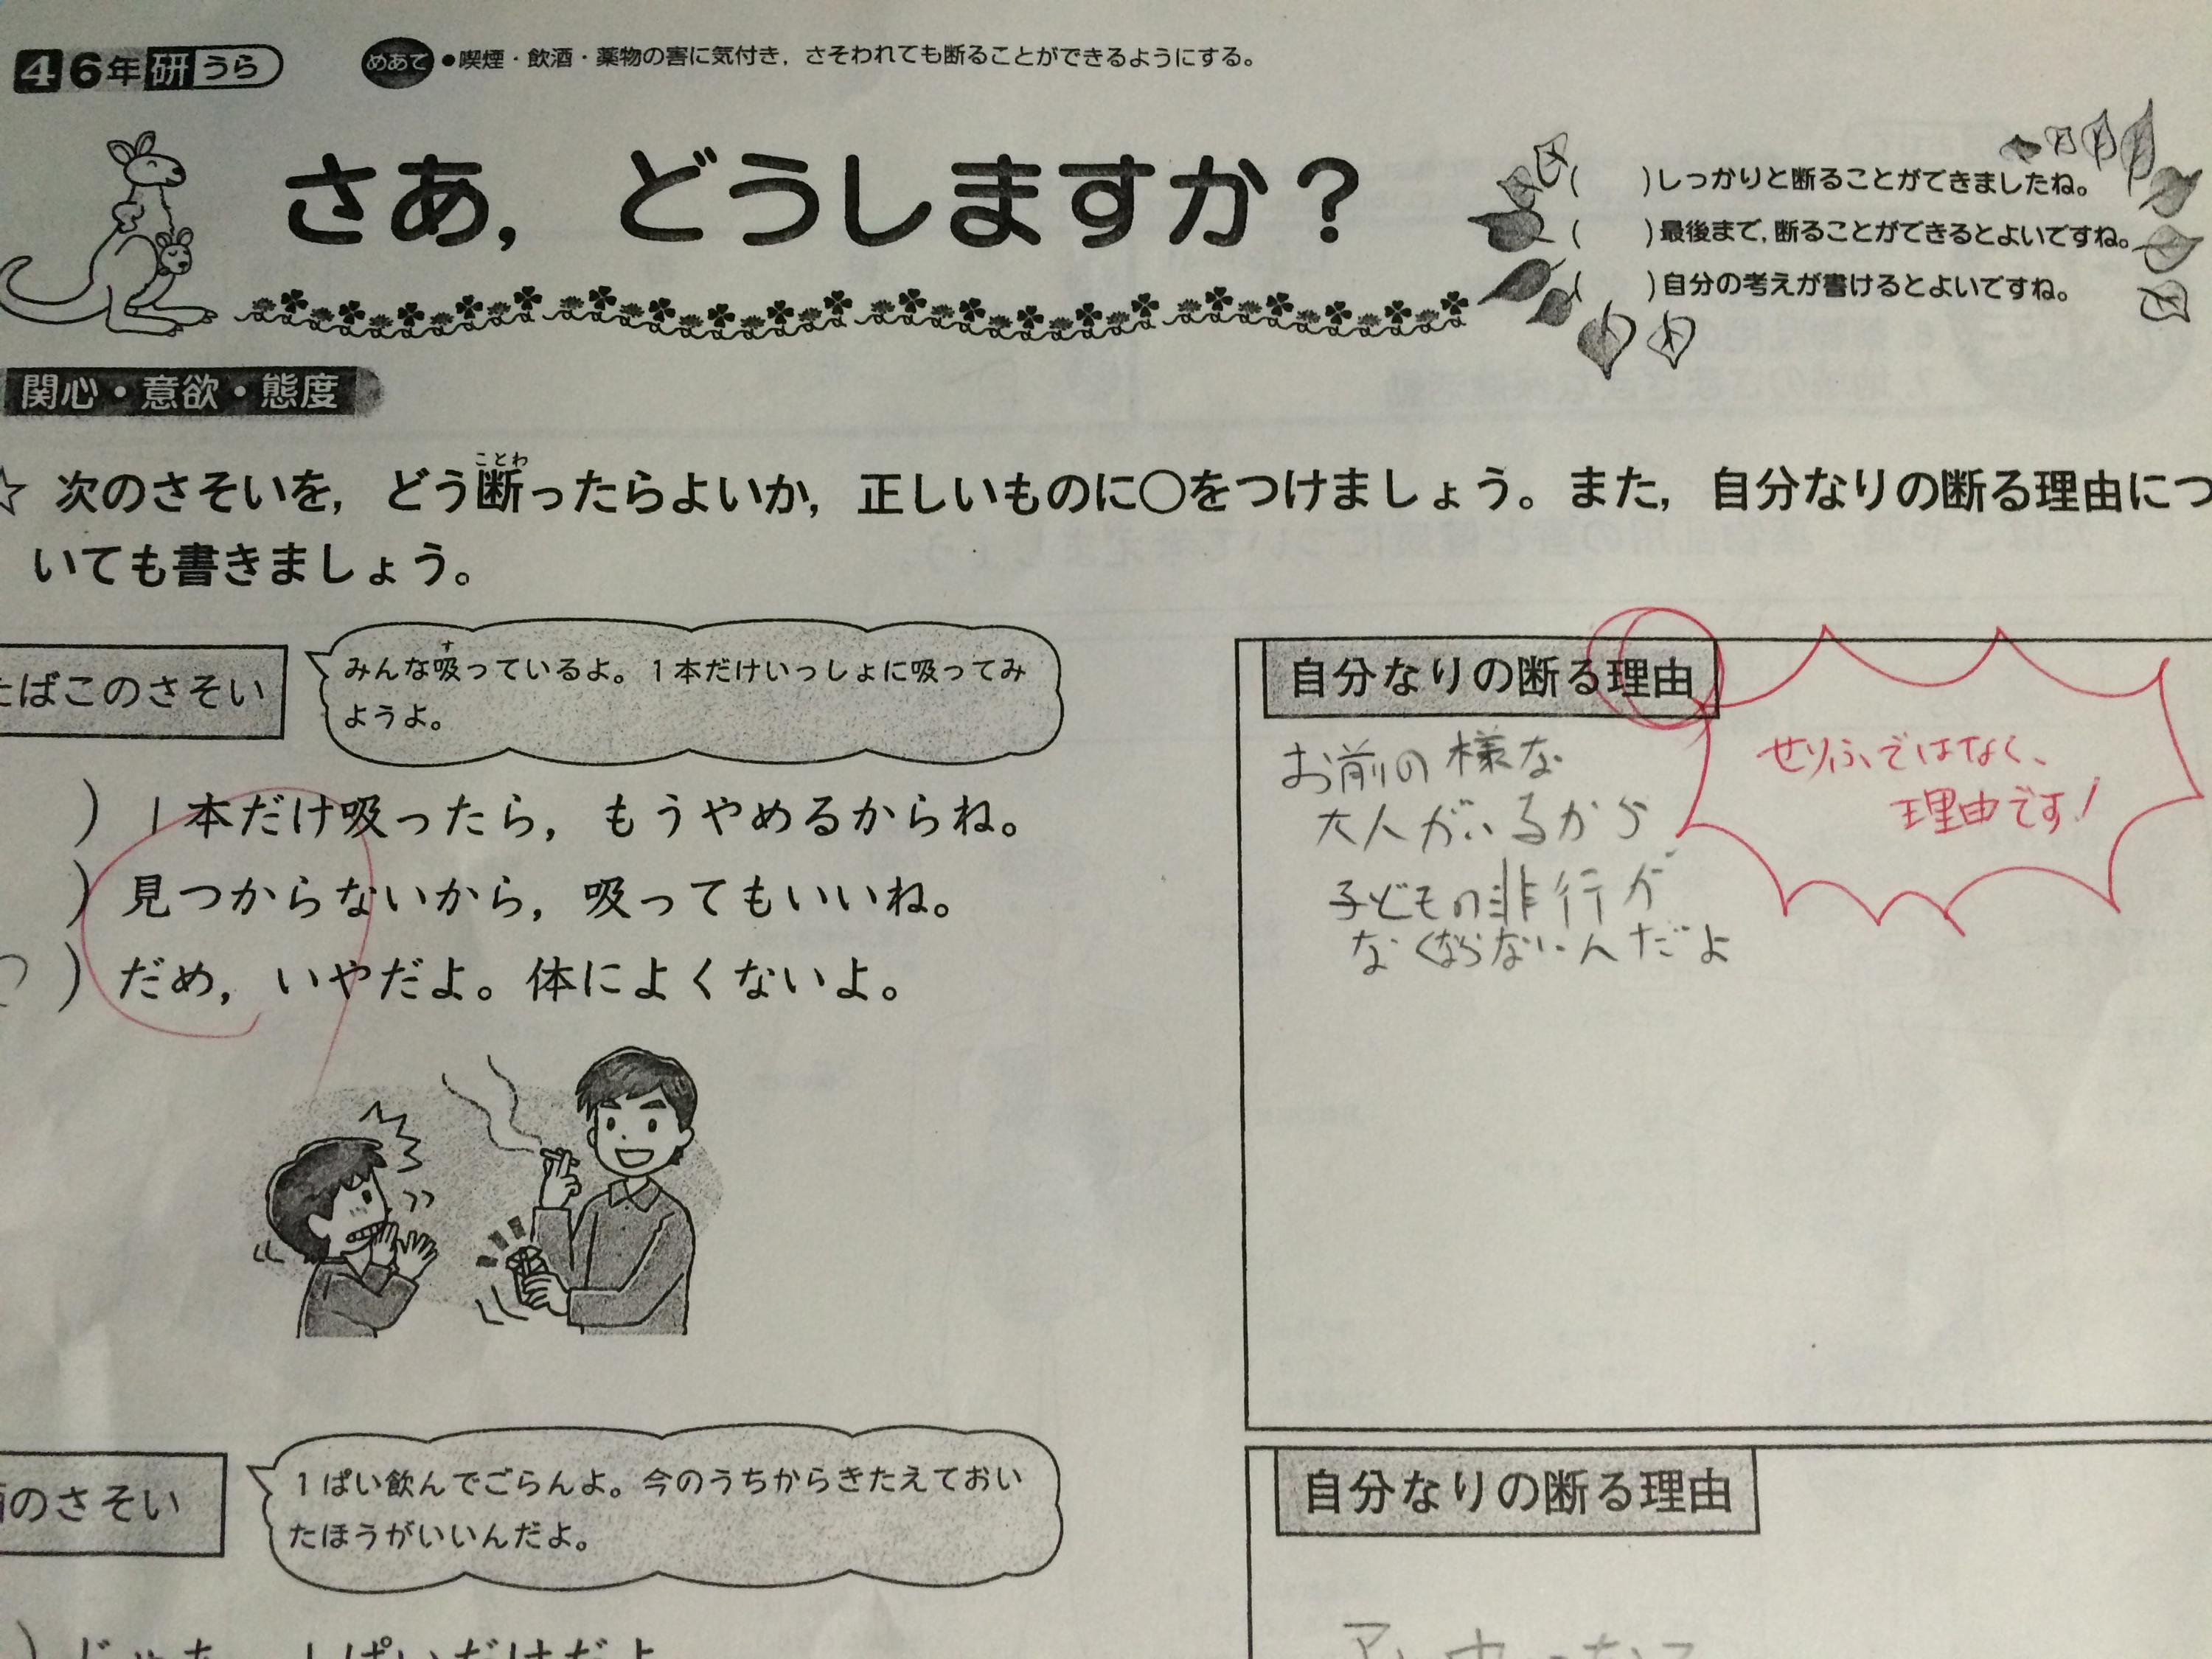 4 6年 研 うら
めあて ●喫煙・飲酒・薬物の害に気付き，さそわれても断ることができるようにする。
さあ，どうしますか？
( )しっかりと断ることができましたね。
( )最後まで，断ることができるとよいですね。
( )自分の考えが書けるとよいですね。
関心・意欲・態度
☆ 次のさそいを，どう断ったらよいか，正しいものに○をつけましょう。また，自分なりの断る理由につ
ことわ
いても書きましょう。
たばこのさそい
みんな吸っているよ。1本だけいっしょに吸ってみ
す
ようよ。
) 1本だけ吸ったら，もうやめるからね。
) 見つからないから，吸ってもいいね。
) だめ，いやだよ。体によくないよ。
自分なりの断る理由
お前の様な
大人がいるから
子どもの非行が
なくならないんだよ
せりふではなく、
理由です!
のさそい
1ぱい飲んでごらんよ。今のうちからきたえておい
たほうがいいんだよ。
自分なりの断る理由